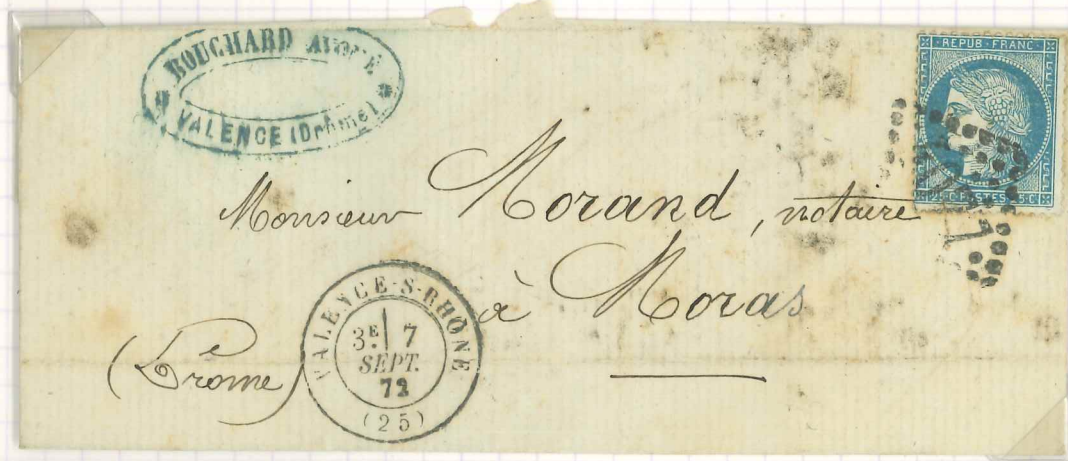 BOUCHARD AVOUÉ
VALENCE (Drôme)
REPUB FRANC
25 C POSTES 25 C
Monsieur Morand, notaire
à Moras
(Drome)
VALENCE-S-RHÔNE
3E 7
SEPT.
72
(25)